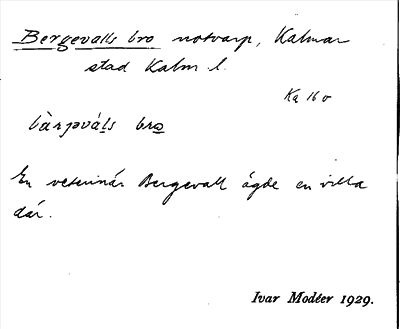 Bergevalls bro notvarp, Kalmar
stad Kalm l.
Ka 16 o
bàrjəváls bro
En veterinär Bergevall ägde en villa
där.
Ivar Modéer 1929.